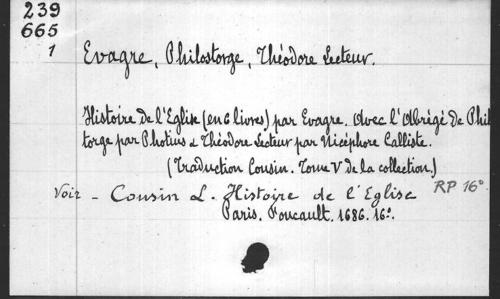 239
665
1
Evagre, Philostorge, Théodore Lecteur.
Histoire de l'Eglise (en 6 livres) par Evagre. Avec l'Abrégé de Phil
torge par Photius & Théodore Lecteur par Nicéphore Calliste.
(Traduction Cousin. Tome V de la collection.)
RP 16°
Voir - Cousin L. Histoire de l'Eglise
Paris. Foucault. 1686. 16°.